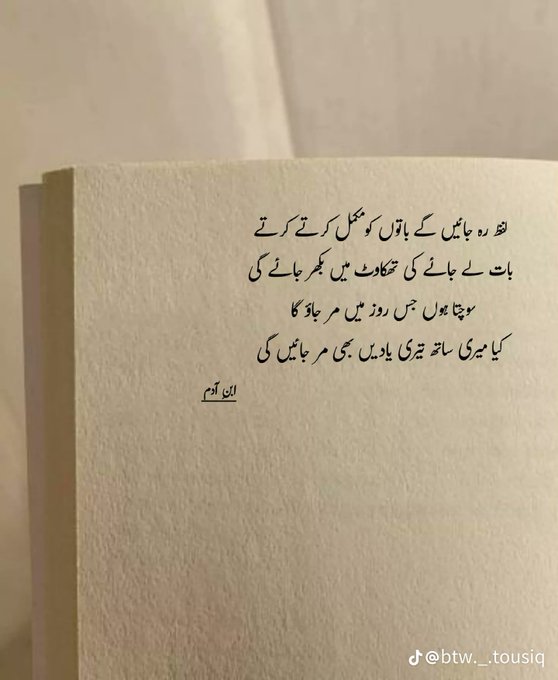 لفظ رہ جائیں گے باتوں کو مکمل کرتے کرتے
بات لے جائے کی تھکاوٹ میں بکھر جائے گی
سوچتا ہوں جس روز میں مر جاؤ گا
کیا میری ساتھ تیری یادیں بھی مر جائیں گی
ابنِ آدم
@btw._.tousiq